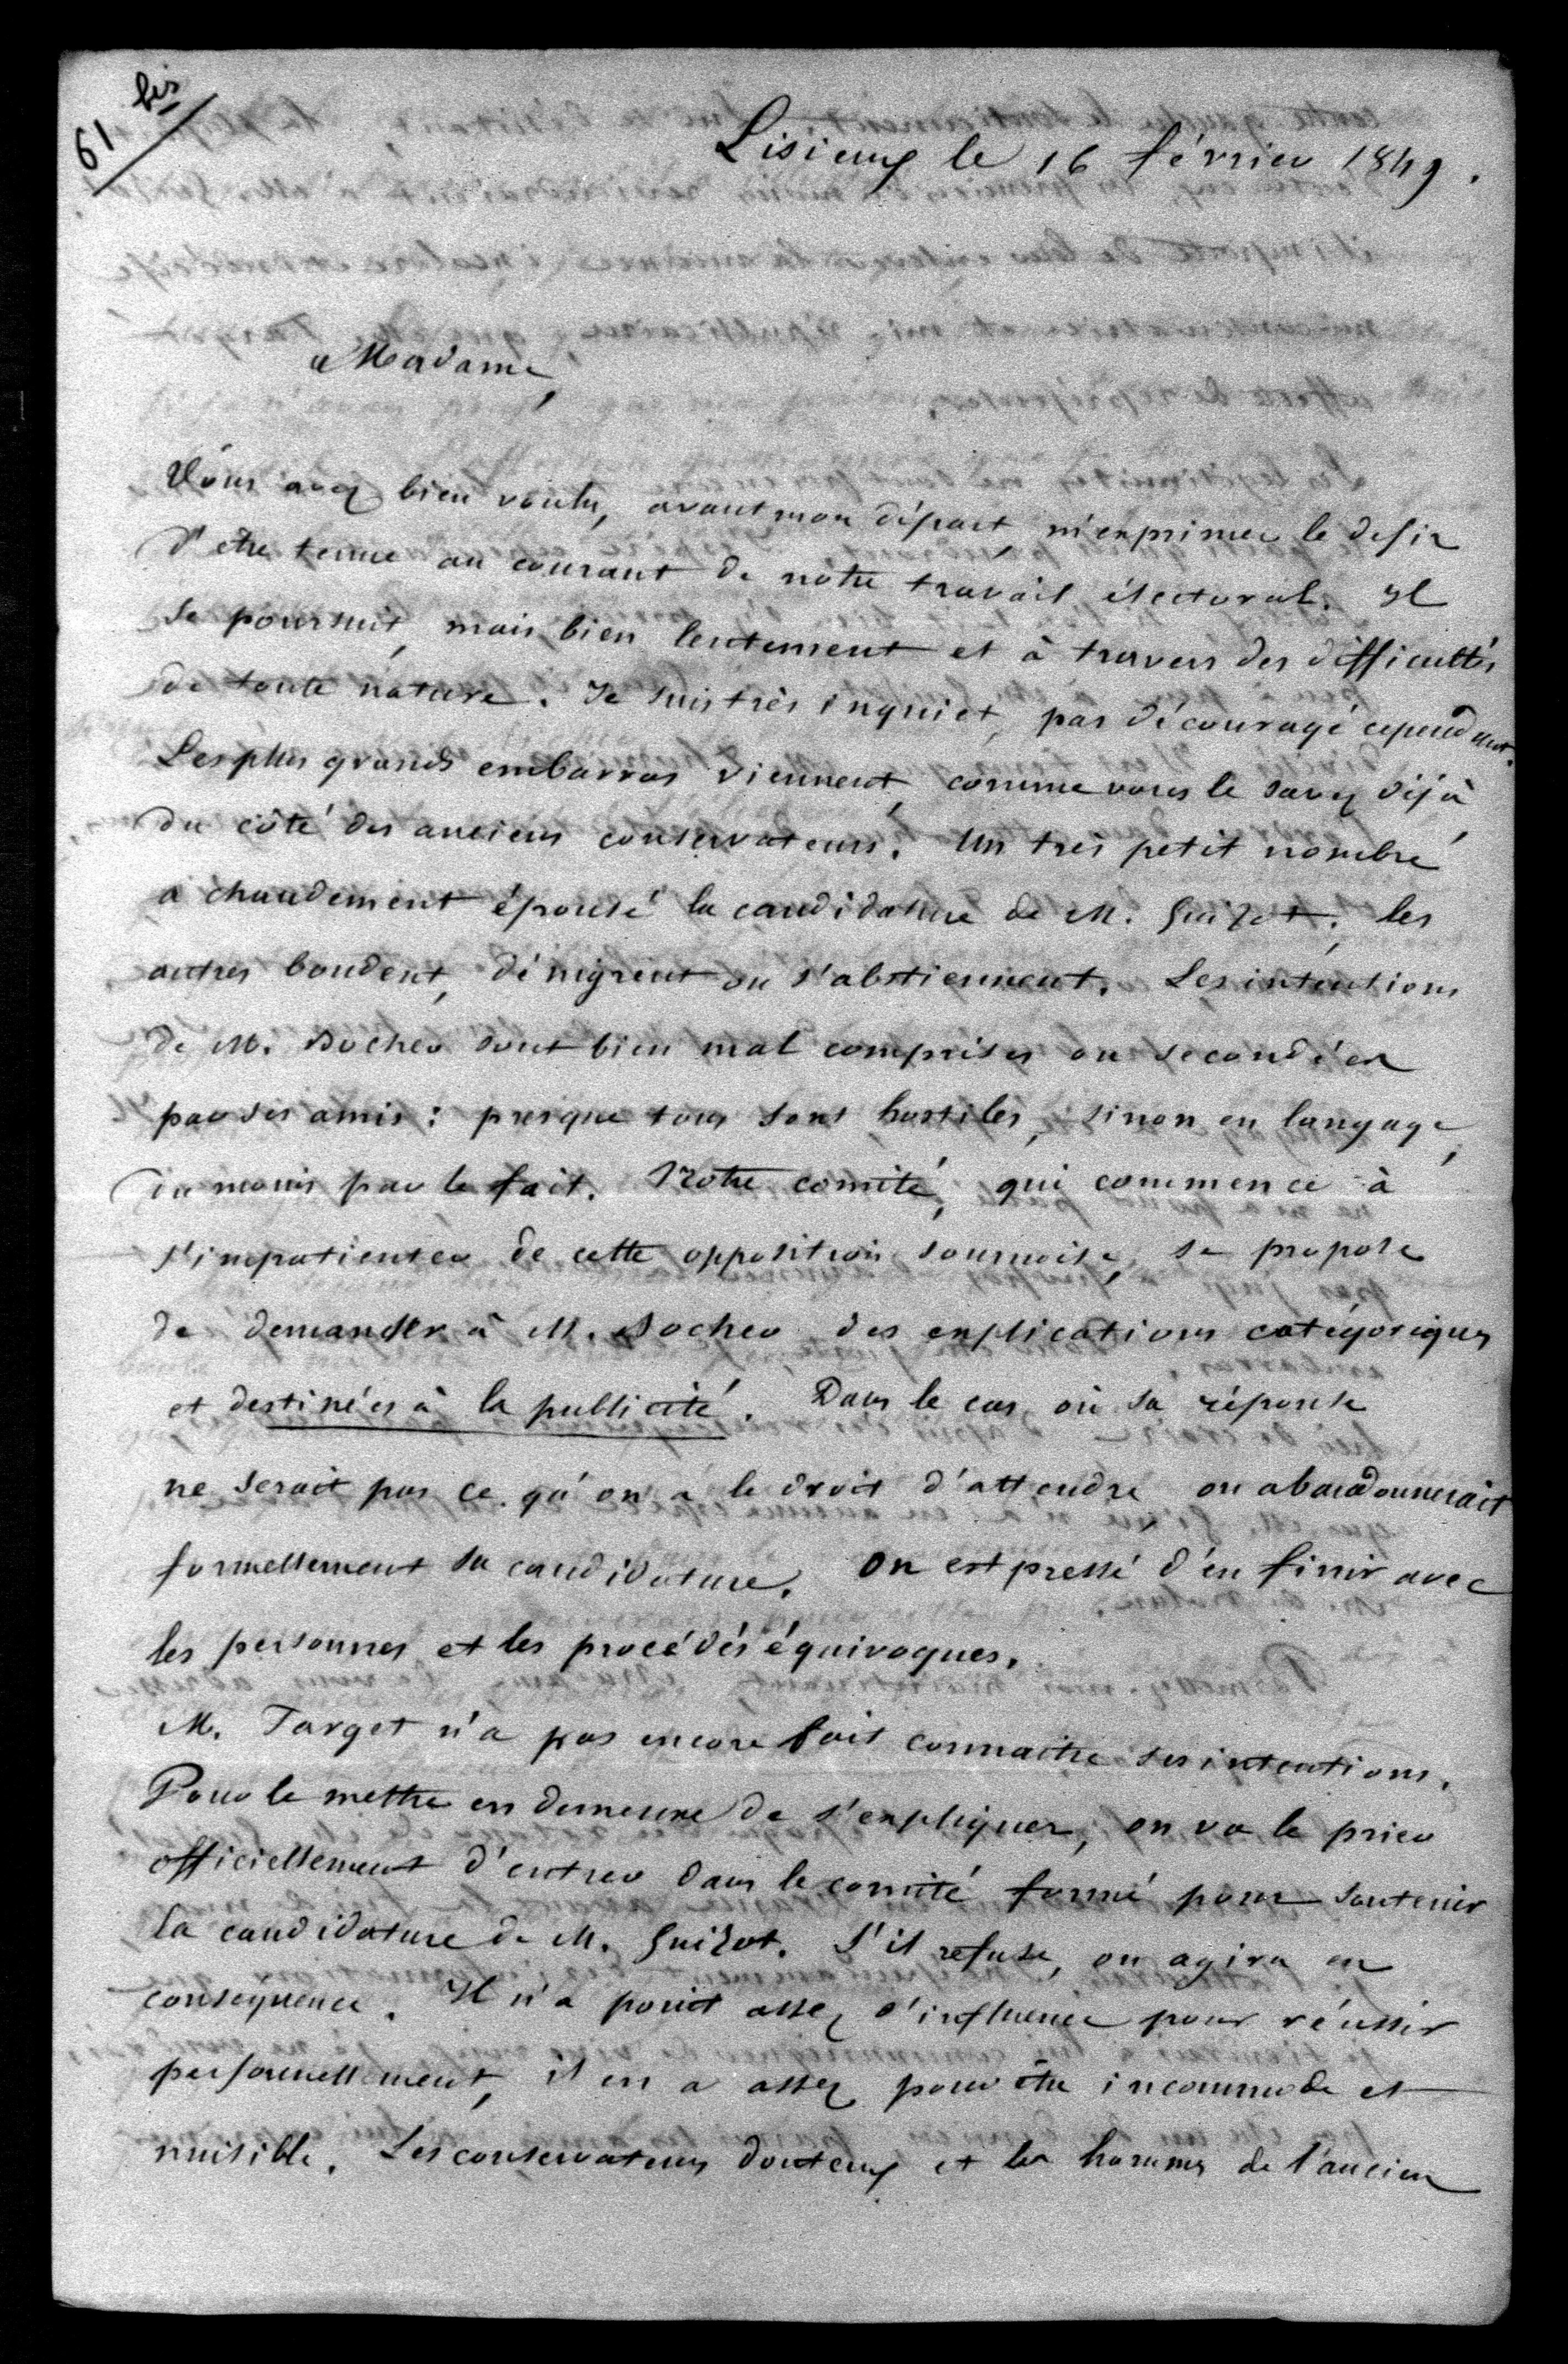 61 bis
Lisieux le 16 février 1849.
Madame,
Vous avez bien voulu, avant mon départ, m'exprimer le desir
d'etre tenue au courant de notre travail électoral. Il
se poursuit, mais bien lentement et à travers des difficultés
de toute nature. Je suis très inquiet, pas découragé cependant.
Les plus grands embarras viennent, comme vous le savez déjà,
du côté des anciens conservateurs. Un très petit nombre
a chaudement épousé la candidature de M. Guizot; les
autres boudent, dénigrent ou s'abstiennent. Les intentions
de M. Bocher sont bien mal comprises ou secondées
par ses amis: presque tous sont hostiles, sinon en langage,
du moins par le fait. Notre comité, qui commence à
s'impatienter de cette opposition sournoise, se propose
de demander à M. Bocher des explications catégoriques
et destinées à la publicité. Dans le cas où sa réponse
ne serait pas ce qu'on a le droit d'attendre, on abandonnerait
formellement sa candidature. On est pressé d'en finir avec
les personnes et les procédés équivoques.
M. Target n'a pas encore fait connaitre ses intentions.
Pour le mettre en demeure de s'expliquer, on va le prier
officiellement d'entrer dans le comité formé pour soutenir
la candidature de M. Guizot. S'il refuse, on agira en
conséquence. Il n'a point assez d'influence pour réussir
personnellement, il en a assez pour être incommode et
nuisible. Les conservateurs douteux et les hommes de l'ancien